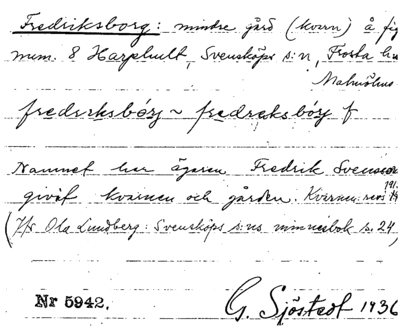 Fredriksborg: mindre gård (kvarn) å fig
num. 8 Harphult, Svensköps s:n, Frosta hd
Malmöhus
fredrksbórj ~ fredreksbórj f
Namnet har ägaren Fredrik Svensson
givit kvarnen och gården. Kvarnen revs
(Jfr Ola Lundberg: Svensköps s:ns minnesbok s. 24)
Nr 5942.
G. Sjöstedt 1936